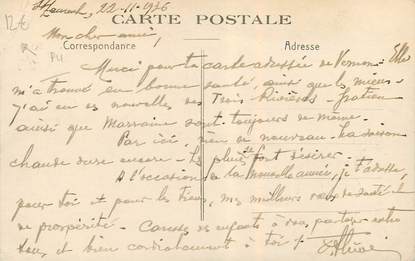 St Laurent, 22-11-1926
12€
CARTE POSTALE
Mon cher ami,
Correspondance
Adresse
Merci pour ta carte adressée de Vernon. Elle
m'a trouvé en bonne santé, ainsi que les miens.
J'ai eu des nouvelles des Trois-Rivières
ainsi que Marraine sont toujours de même.
Par ici, rien de nouveau. La saison
chaude dure encore. Les pluies se font désirer.
A l'occasion de la Nouvelle année, je t'adresse,
pour toi et pour les tiens, mes meilleurs vœux de santé et
de prospérité. Caresses des enfants à vous, partage entre
vous, et bien cordialement à toi